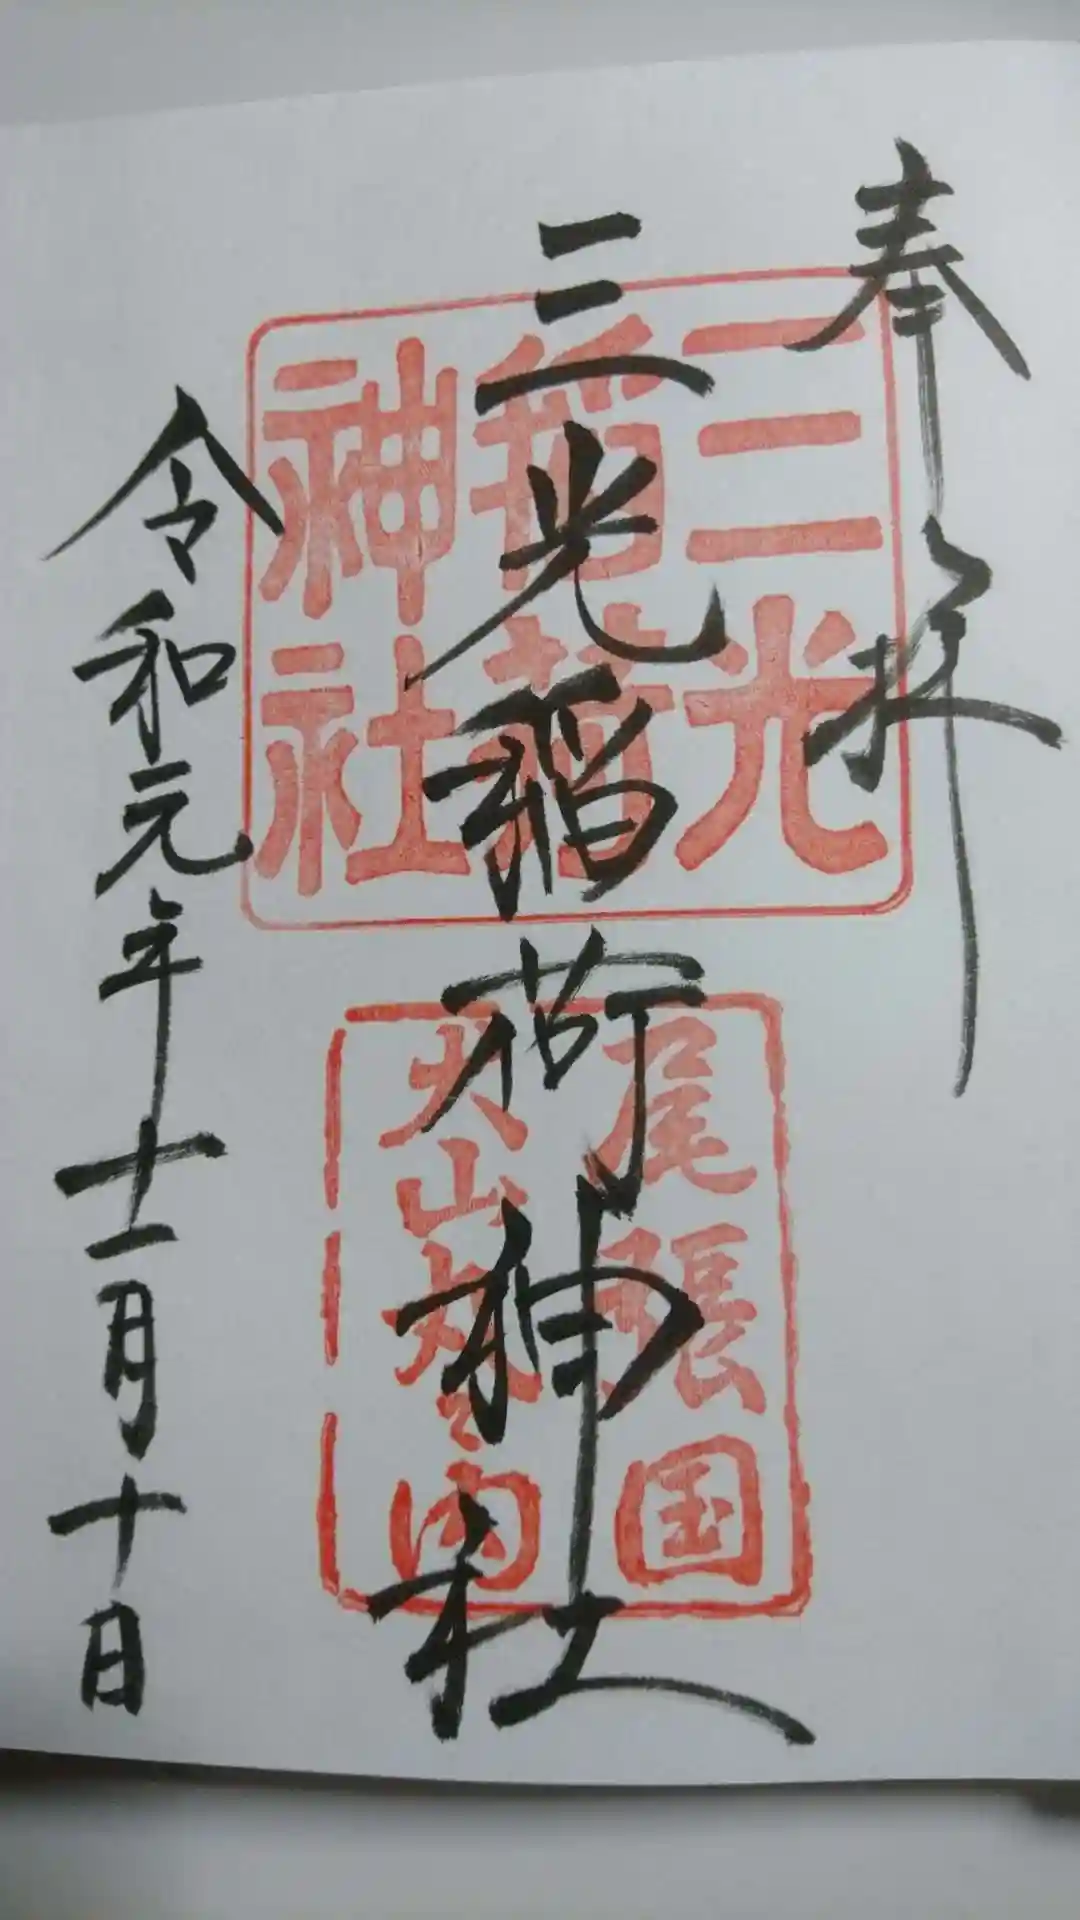 奉拝
三光稲荷神社
令和元年十二月十日
三光
稲荷
神社
尾張国
犬山丸之内